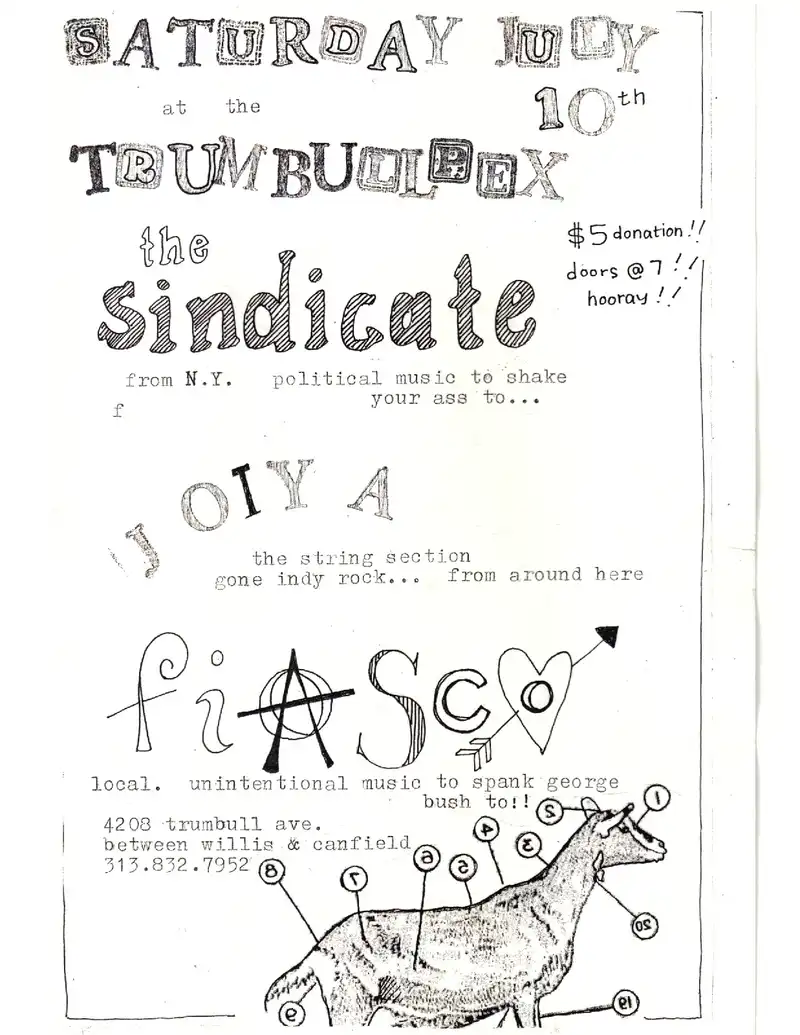 SATURDAY JULY
10th
at the
TRUMBULLPLEX
the
sindicate
$5 donation!!
doors @ 7!!
hooray!!
from N.Y. political music to shake
your ass to...
f
JOIYA
the string section
gone indy rock... from around here
fiASCO
local. unintentional music to spank george
bush to!!
4208 trumbull ave.
between willis & canfield
313.832.7952
1
2
3
4
5
6
7
8
9
20
19